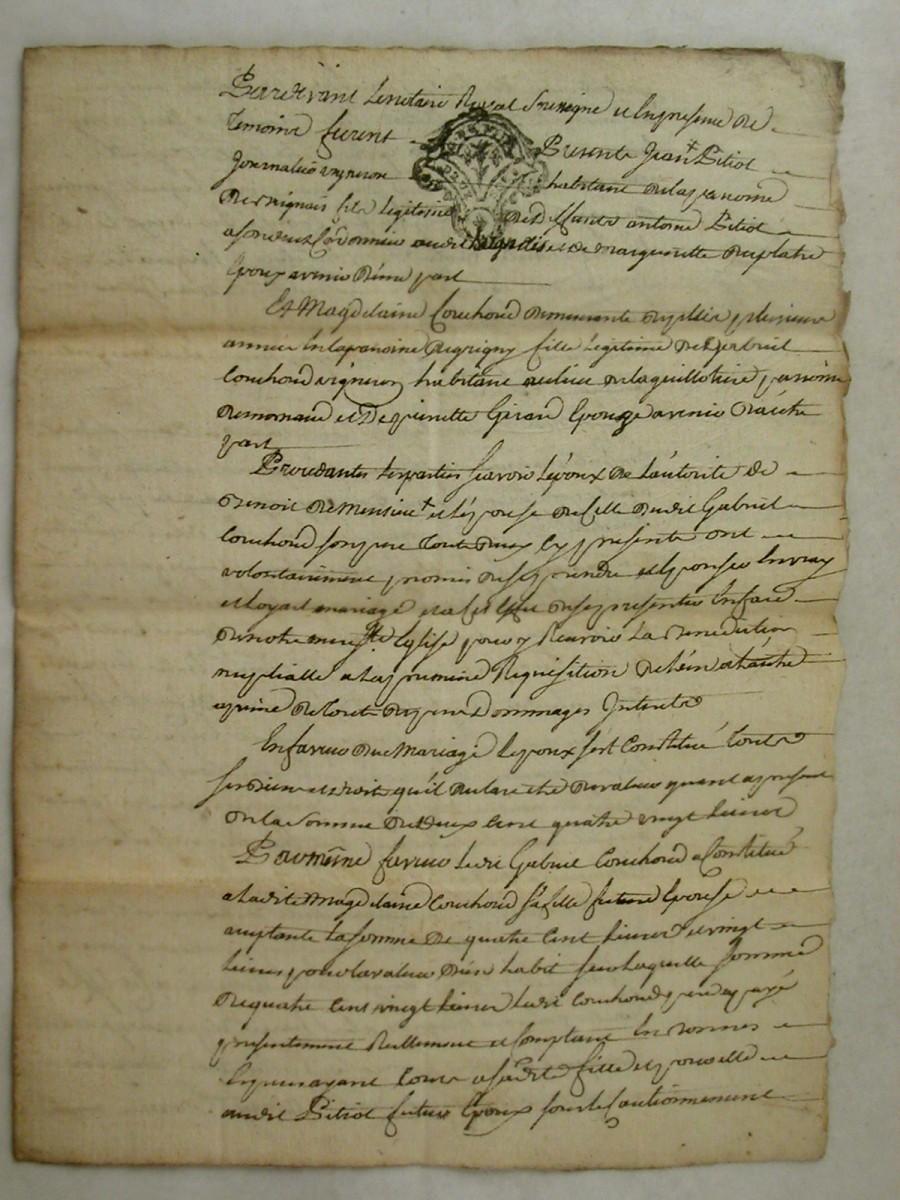 Pardevant le notaire Royal soussigné et en presence de
temoins furent Presents Jean Pitiot
Journalier vigneron habitant de la paroisse
de fils legitime de deffunts antoine Pitiot
a son vivant Cordonnier audit et de marguerite Duplatre
Epoux avenir d'une part
Et Magdelaine Couchoud demeurante depuis plusieurs
années en la paroisse de grigny fille Legitime de Gabriel
Couchoud vigneron habitant au lieu de la guillotiere paroisse
de mornand et de pierrette Girard Epouze avenir d'autre
part
Procedantes Les parties sçavoir L'époux de L'autorité de
Benoit et L'epouse de celle dudit Gabriel
Couchoud son pere tous deux Cy presents ont
volontairement promis de se prendre et Epouser En vray
et loyal mariage et a cet effet de se presenter En face
de notre mere Ste Eglise pour y Recevoir La Benediction
nuptialle a La premiere Requisition de L'un a L'autre
a peine de tous depens Dommages Interets
En faveur du Mariage L'epoux s'est Constitué tous
ses Biens et droits qu'il declare etre de valeur quant a present
de la Somme de deux Cent quatre vingt Livres
Par même faveur Ledit Gabriel Couchoud a Constitué
a Ladite Magdelaine Couchoud Sa fille future Epouse
augtante La Somme de quatre Cent Livres et vingt
Livres pour la valeur d'un habit sur Laquelle Somme
de quatre Cent vingt Livres Ledit Couchoud pere a payé
presentement Reellement et Comptant En
Espece ayant Cours a sadite fille et pour elle
audit Pitiot futur Epoux sous le Cautionnement